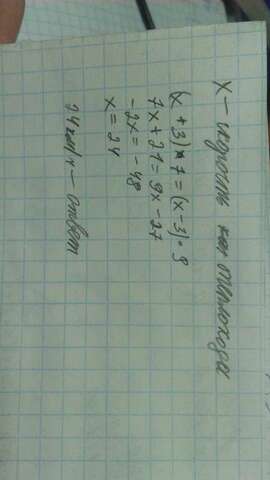 X – скорость теплохода
(x + 3) · 7 = (x – 3) · 9
7x + 21 = 9x – 27
– 2x = – 48
x = 24
24 км/ч – ответ